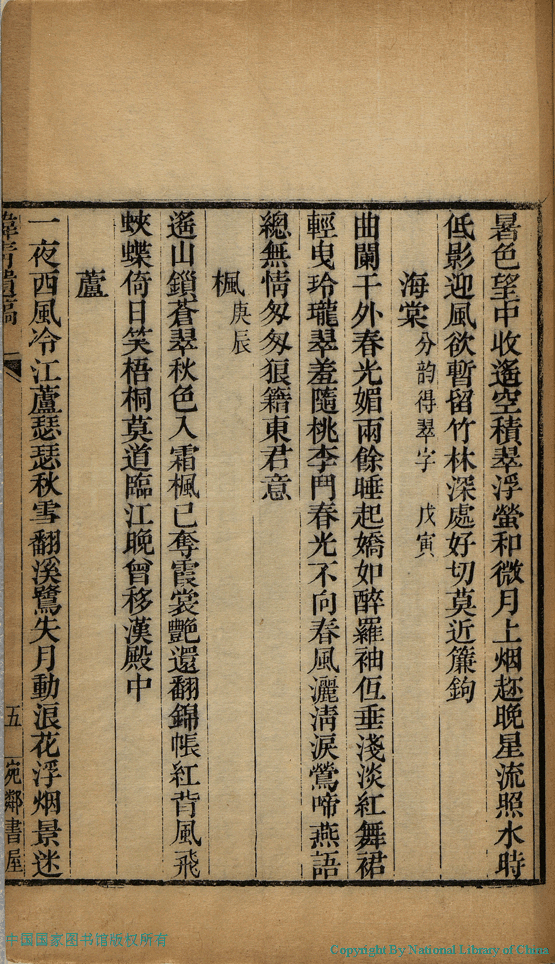 暑色望中收遙空積翠浮螢和微月上烟趂晚星流照水時
低影迎風欲暫留竹林深處好切莫近簾鉤
海棠分韵得翠字 戊寅
曲闌干外春光媚雨餘睡起嬌如醉羅袖伍垂淺淡紅舞裙
輕曳玲瓏翠羞隨桃李鬥春光不向春風灑淸淚鶯啼燕語
總無情匆匆狼籍東君意
楓庚辰
遙山鎖蒼翠秋色入霜楓已奪霞裳艷還翻錦帳紅背風飛
蛺蝶倚日笑梧桐莫道臨江晚曾移漢殿中
蘆
一夜西風冷江蘆瑟瑟秋雪翻溪鷺失月動浪花浮烟景迷
緯靑遺稿
五
宛鄰書屋
中国国家图书馆版权所有
Copyright By National Library of China